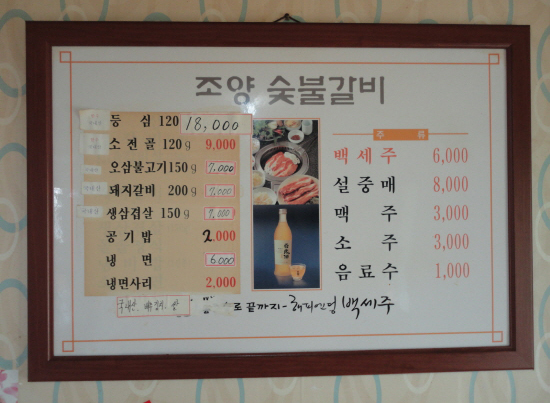 조양 숯불갈비
등 심 120 18,000
소 전 골 120g 9,000
오삼불고기 150g 7,000
돼지갈비 200g 7,000
생삼겹살 150g 9,000
공 기 밥 2,000
냉 면 6,000
냉면사리 2,000
주 류
백 세 주 6,000
설 중 매 8,000
맥 주 3,000
소 주 3,000
음 료 수 1,000
로 끝까지 - 해피엔딩 백세주